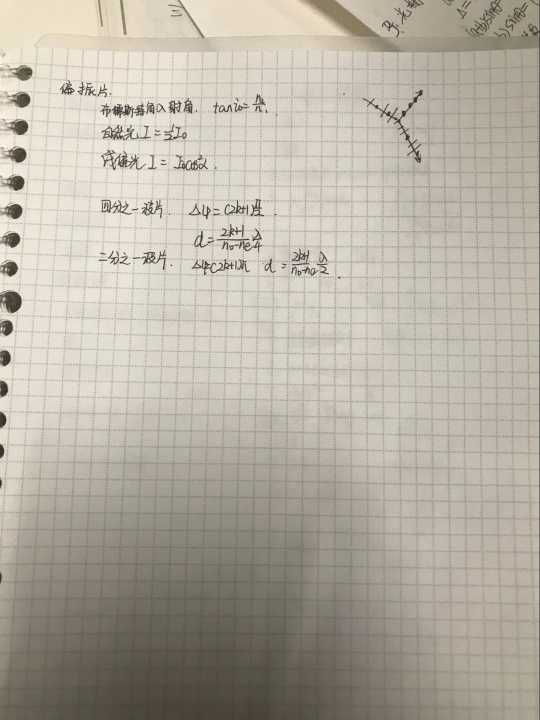 偏振片.
布儒斯特角入射角. tan i₀ = n₂/n₁.
自然光 I = ½I₀
线偏光 I = I₀cos²α.
四分之一波片. Δφ = (2k+1)π/2.
d = (2k+1)/(n₀-ne) λ/4
二分之一波片. Δφ(2k+1)π d = (2k+1)/(n₀-ne) λ/2.